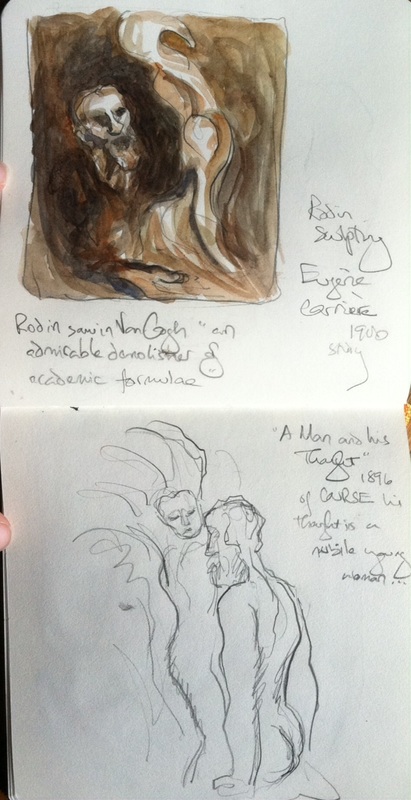 Rodin
Sculpting
Eugène
Carrière
1900
Rodin saw in Van Gogh "an
admirable demolisher of
academic formulae"
"A Man and his
Thought"
1896
of COURSE his
thought is a
nubile young
woman...